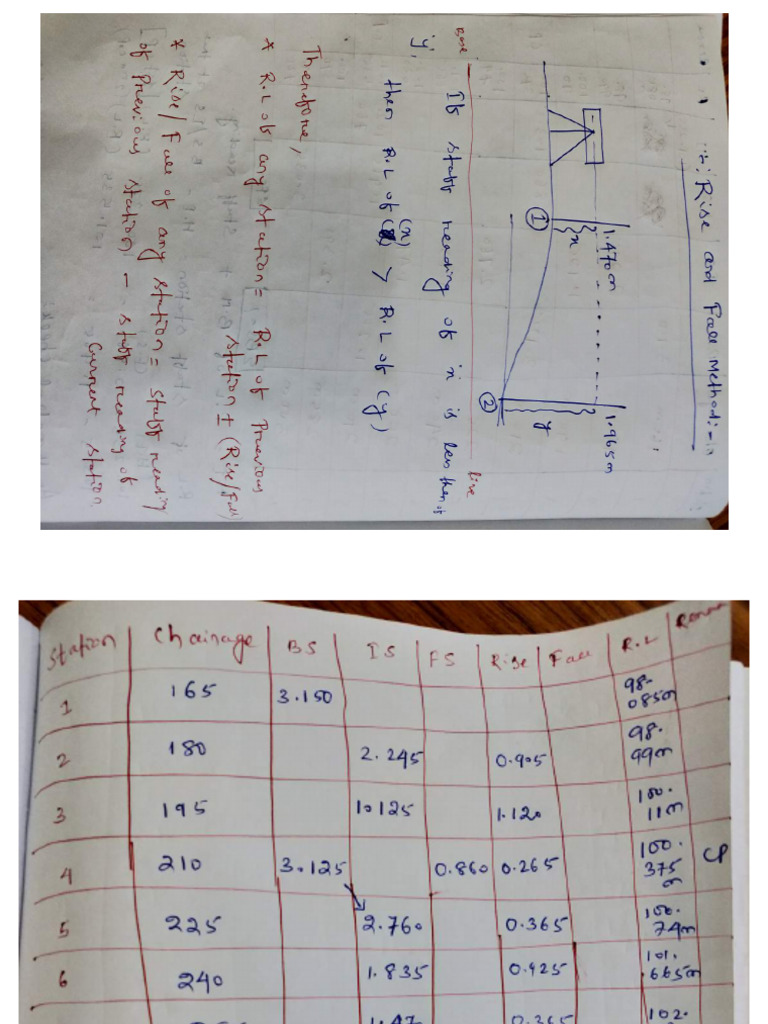 Rise and Fall Method:-
1.470m
1.965m
x
y
1
2
Base
line
If staff reading of x is less then of
y,
then R.L of (x) > R.L of (y)
Therefore,
* R.L of any station = R.L of Previous
station ± (Rise/Fall)
* Rise/Fall of any station = staff reading
of Previous station - staff reading of
Current station
Station Chainage BS IS FS Rise Fall R.L
1 165 3.150 98.085m
2 180 2.245 0.905 98.99m
3 195 1.125 1.120 100.11m
4 210 3.125 0.860 0.265 100.375 CP
5 225 2.760 0.365 100.74m
6 240 1.835 0.925 101.665m
1.47 0.365 102.